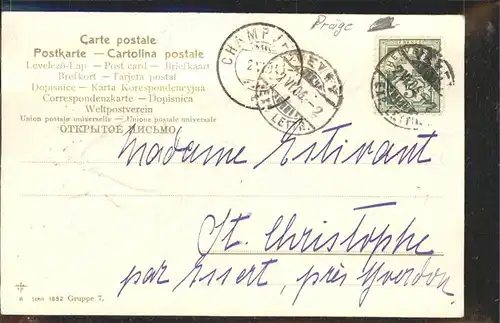 Präge
Carte postale
Postkarte — Cartolina postale
Levelező-Lap — Post card — Briefkaart
Brefkort — Tarjeta postal
Dopisnice — Karta Korespondencyjna
Correspondenzkarte — Dopisnica
Weltpostverein
Union postale universelle — Unione postale universale
ОТКРЫТОЕ ПИСЬМО
Madame Estivant
St. Christophe
par Essert, près Yverdon
1882 Gruppe 7.